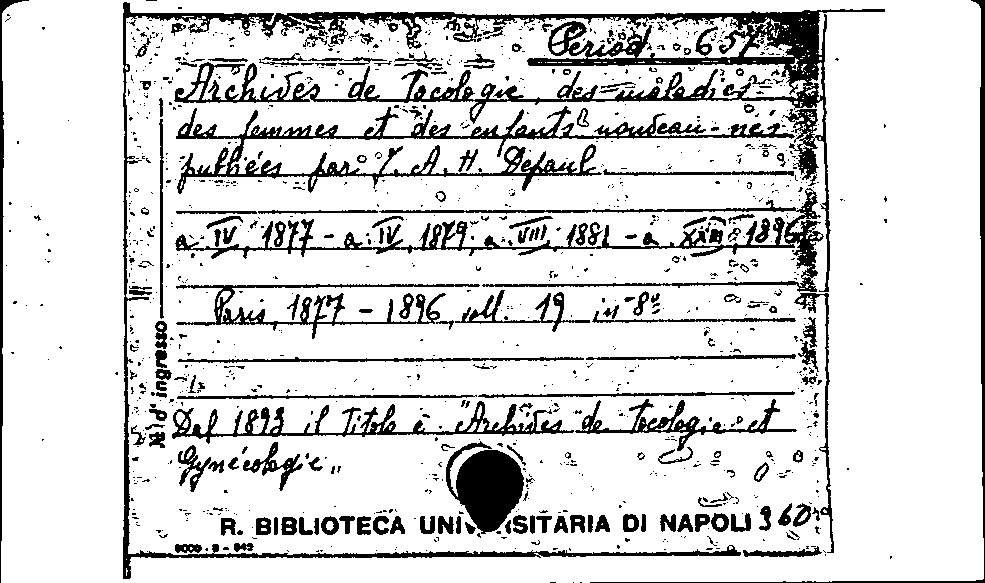 Period. 657
Archives de Tocologie, des maladies
des femmes et des enfants nouveau-nés
publiées par J. A. H. Depaul.
a. IV, 1877 - a. IV, 1879; a. VIII, 1881 - a. XXIII, 1896
Paris, 1877 - 1896, voll. 19 in-8º
Dal 1893 il titolo è "Archives de Tocologie et
Gynécologie„
R. BIBLIOTECA UNIVERSITARIA DI NAPOLI 960
N. d'ingresso